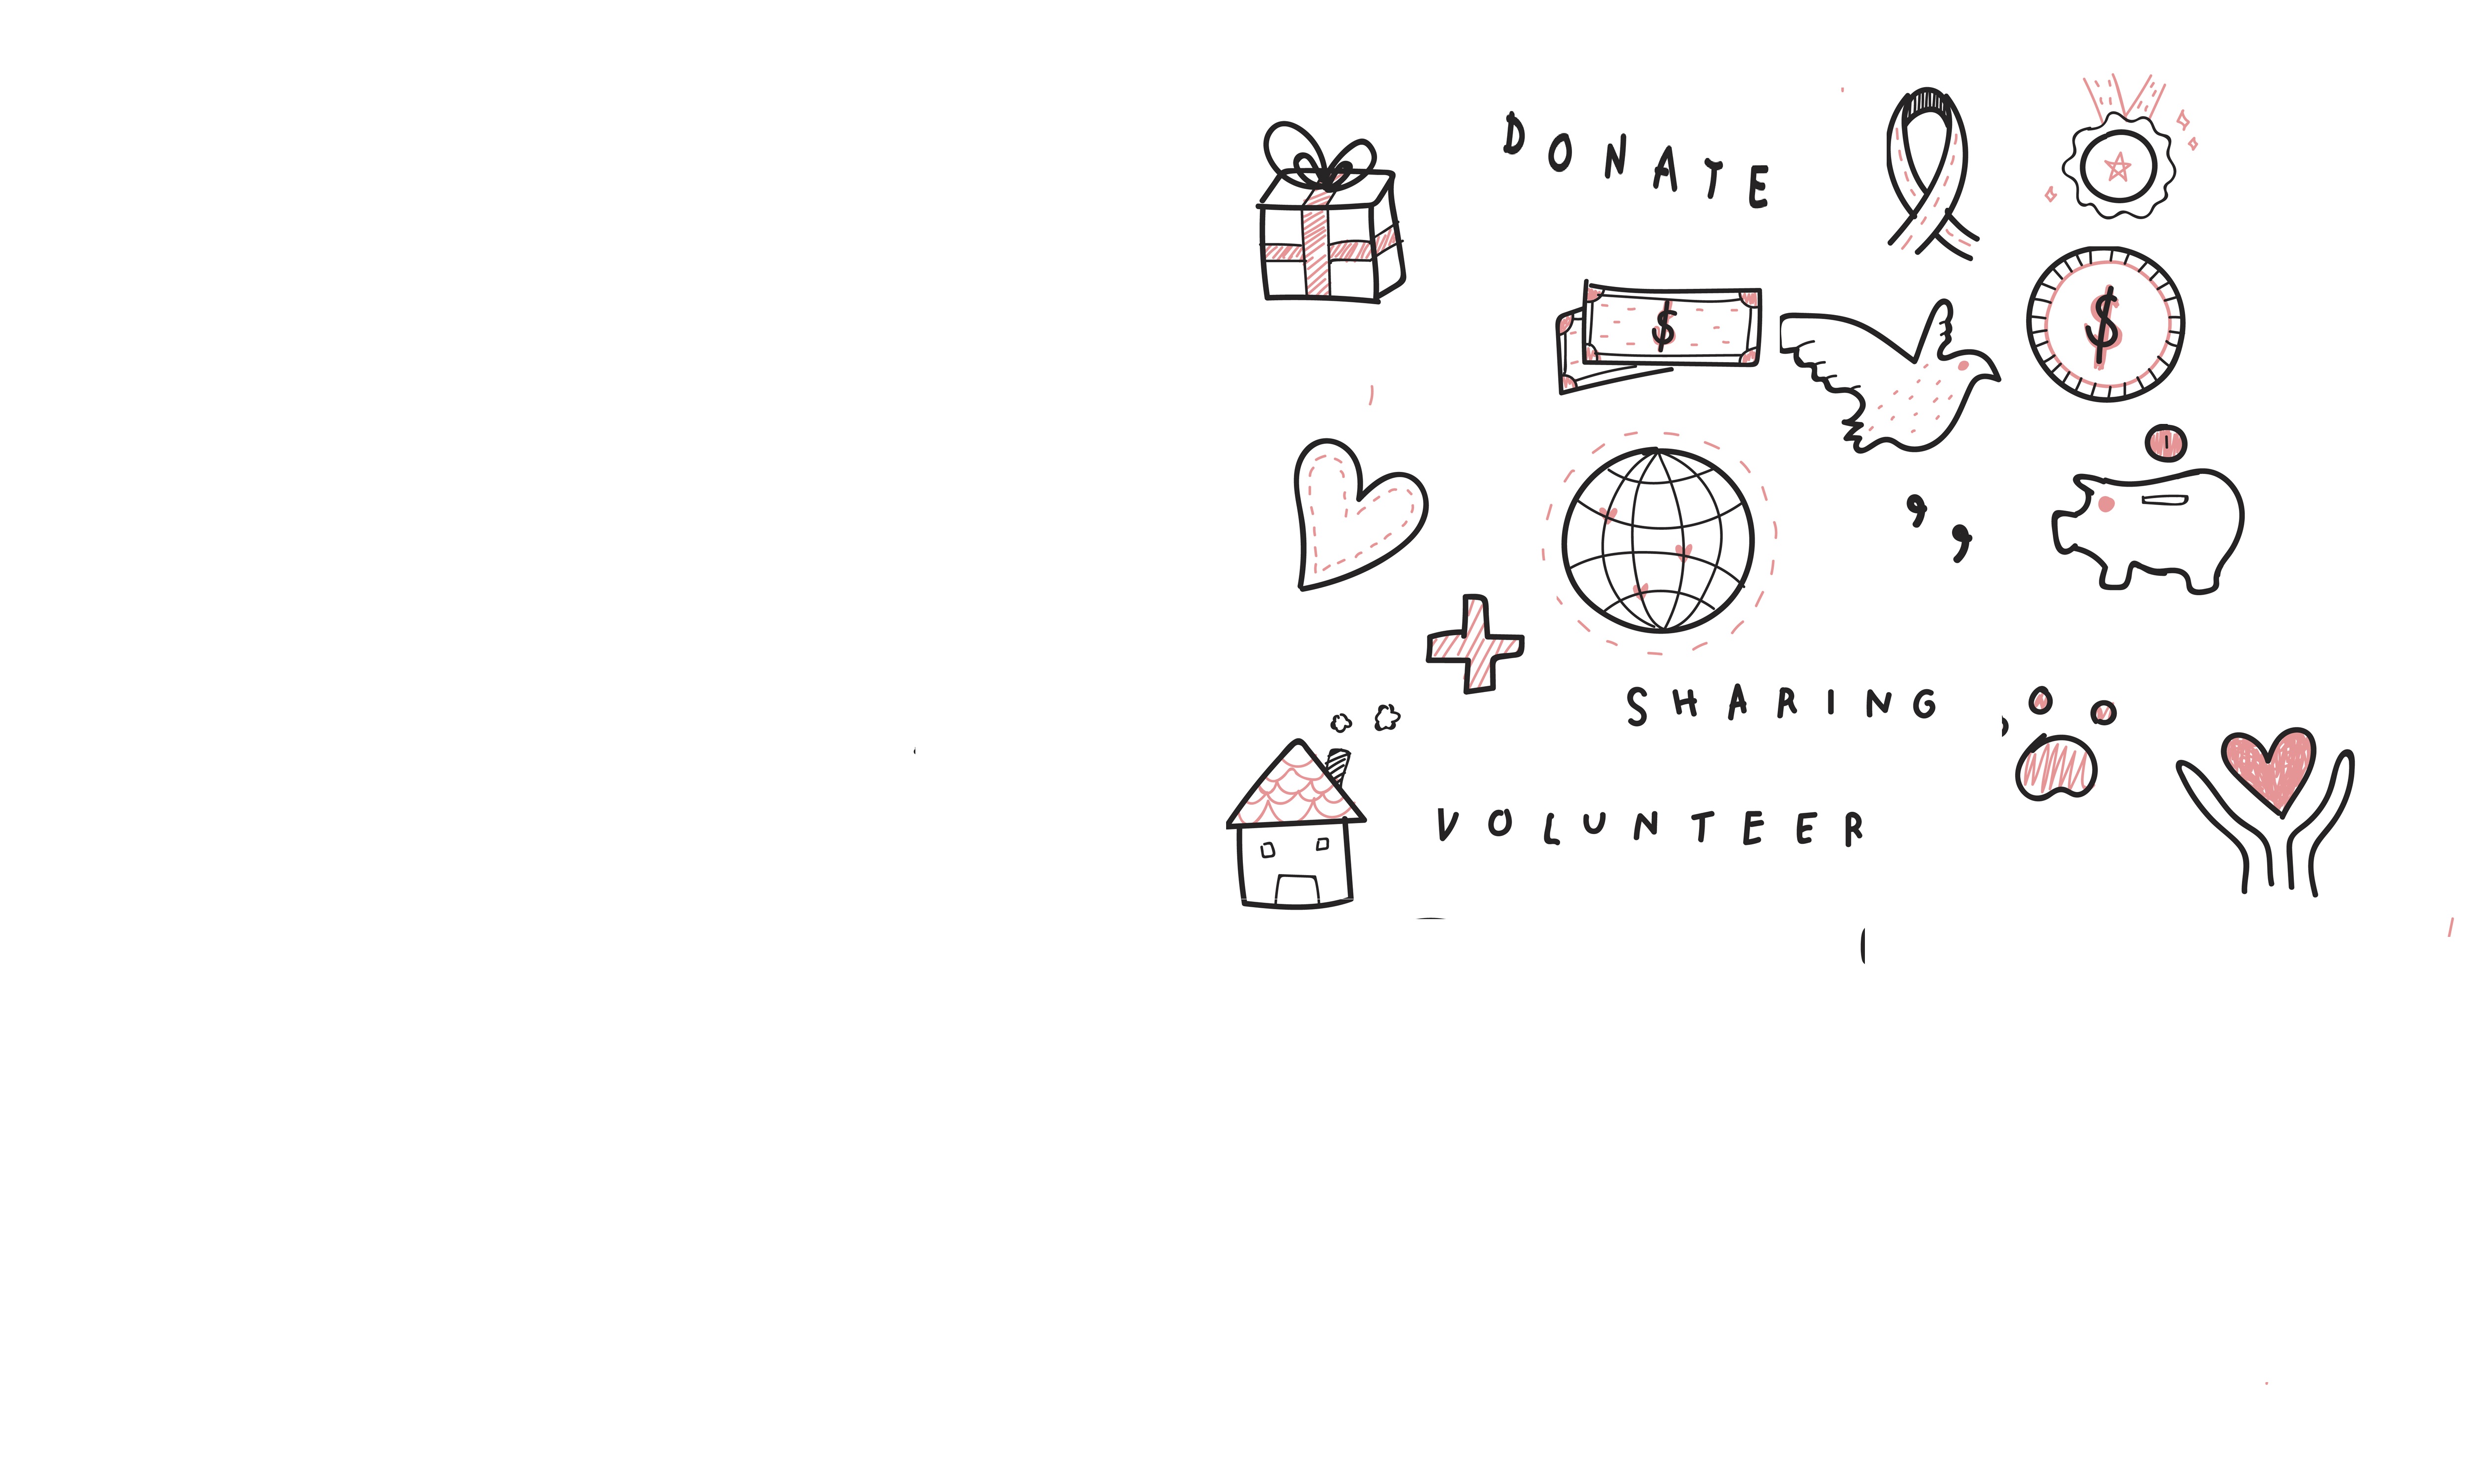 DONATE
$
$
SHARING
VOLUNTEER